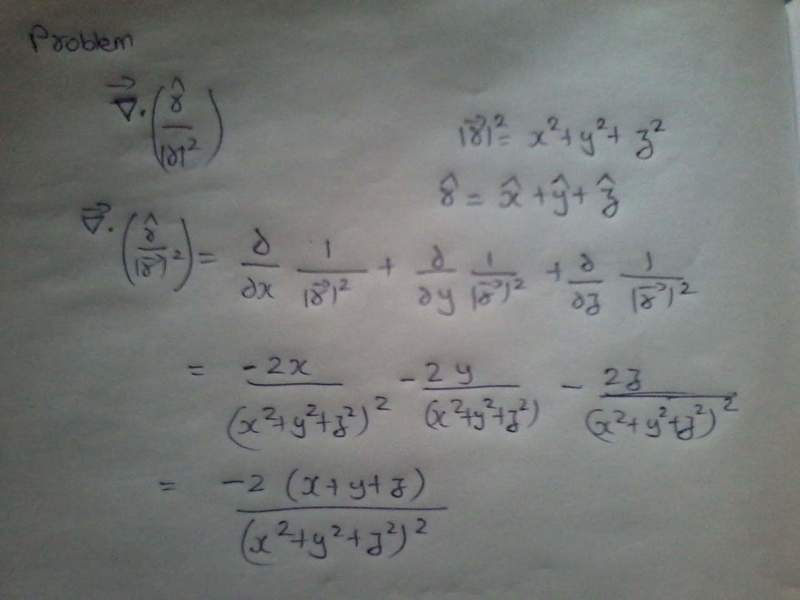 Problem
∇⃗·(r̂/|r|²)
|r⃗|² = x²+y²+z²
r̂ = x̂+ŷ+ẑ
∇⃗·(r̂/|r⃗|²) = ∂/∂x 1/|r⃗|² + ∂/∂y 1/|r⃗|² + ∂/∂z 1/|r⃗|²
= -2x/(x²+y²+z²)² - 2y/(x²+y²+z²) - 2z/(x²+y²+z²)²
= -2(x+y+z)/(x²+y²+z²)²